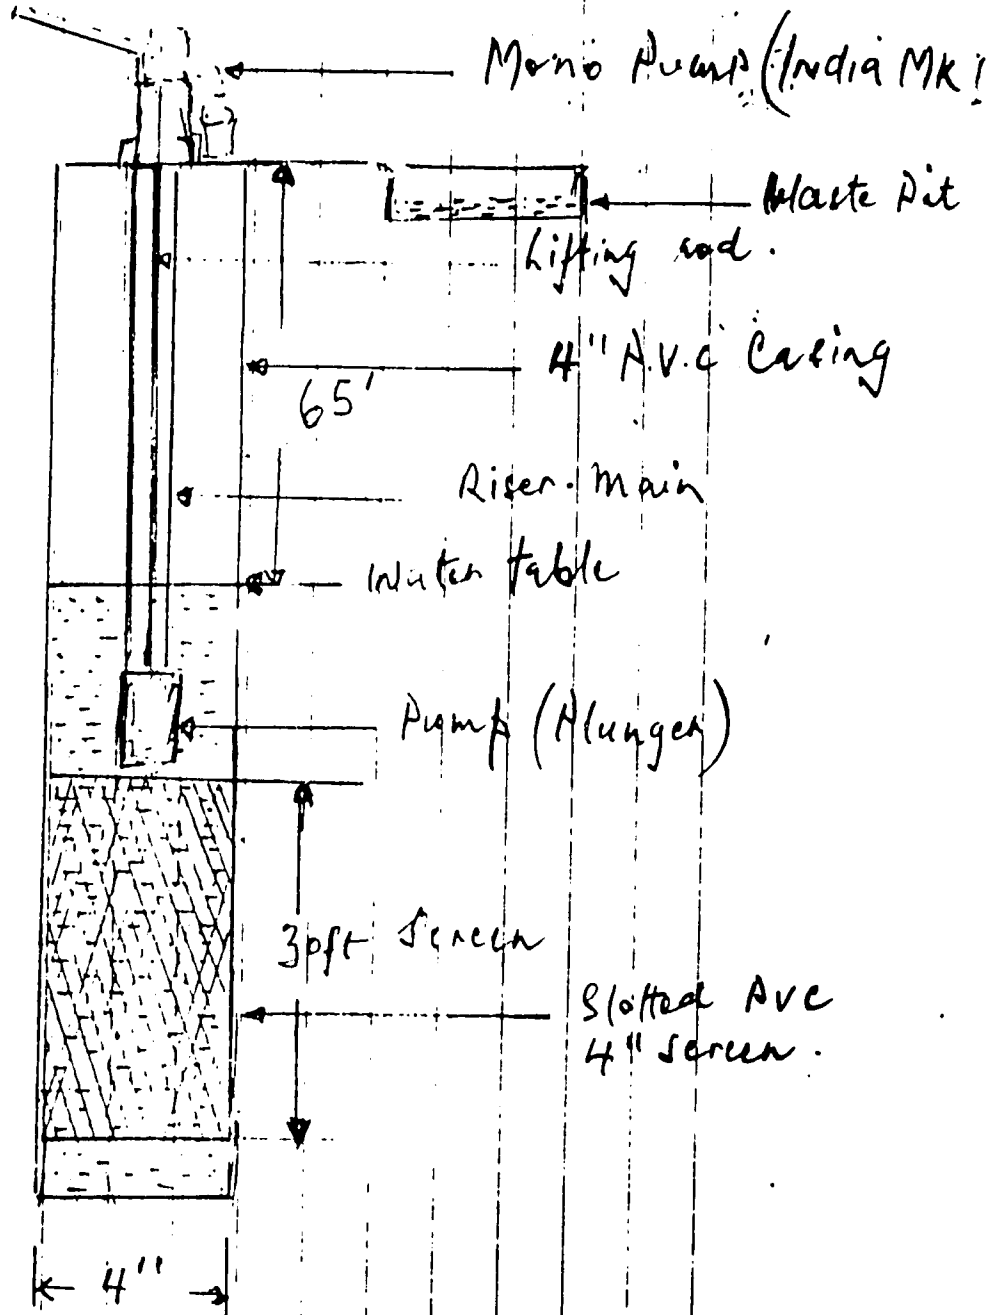 Mono Pump (India MK
Waste Pit
Lifting rod.
4" P.V.C Casing
65'
Riser. Main
Water table
Pump (Plunger)
30ft Screen
Slotted PVC
4" Screen.
4"